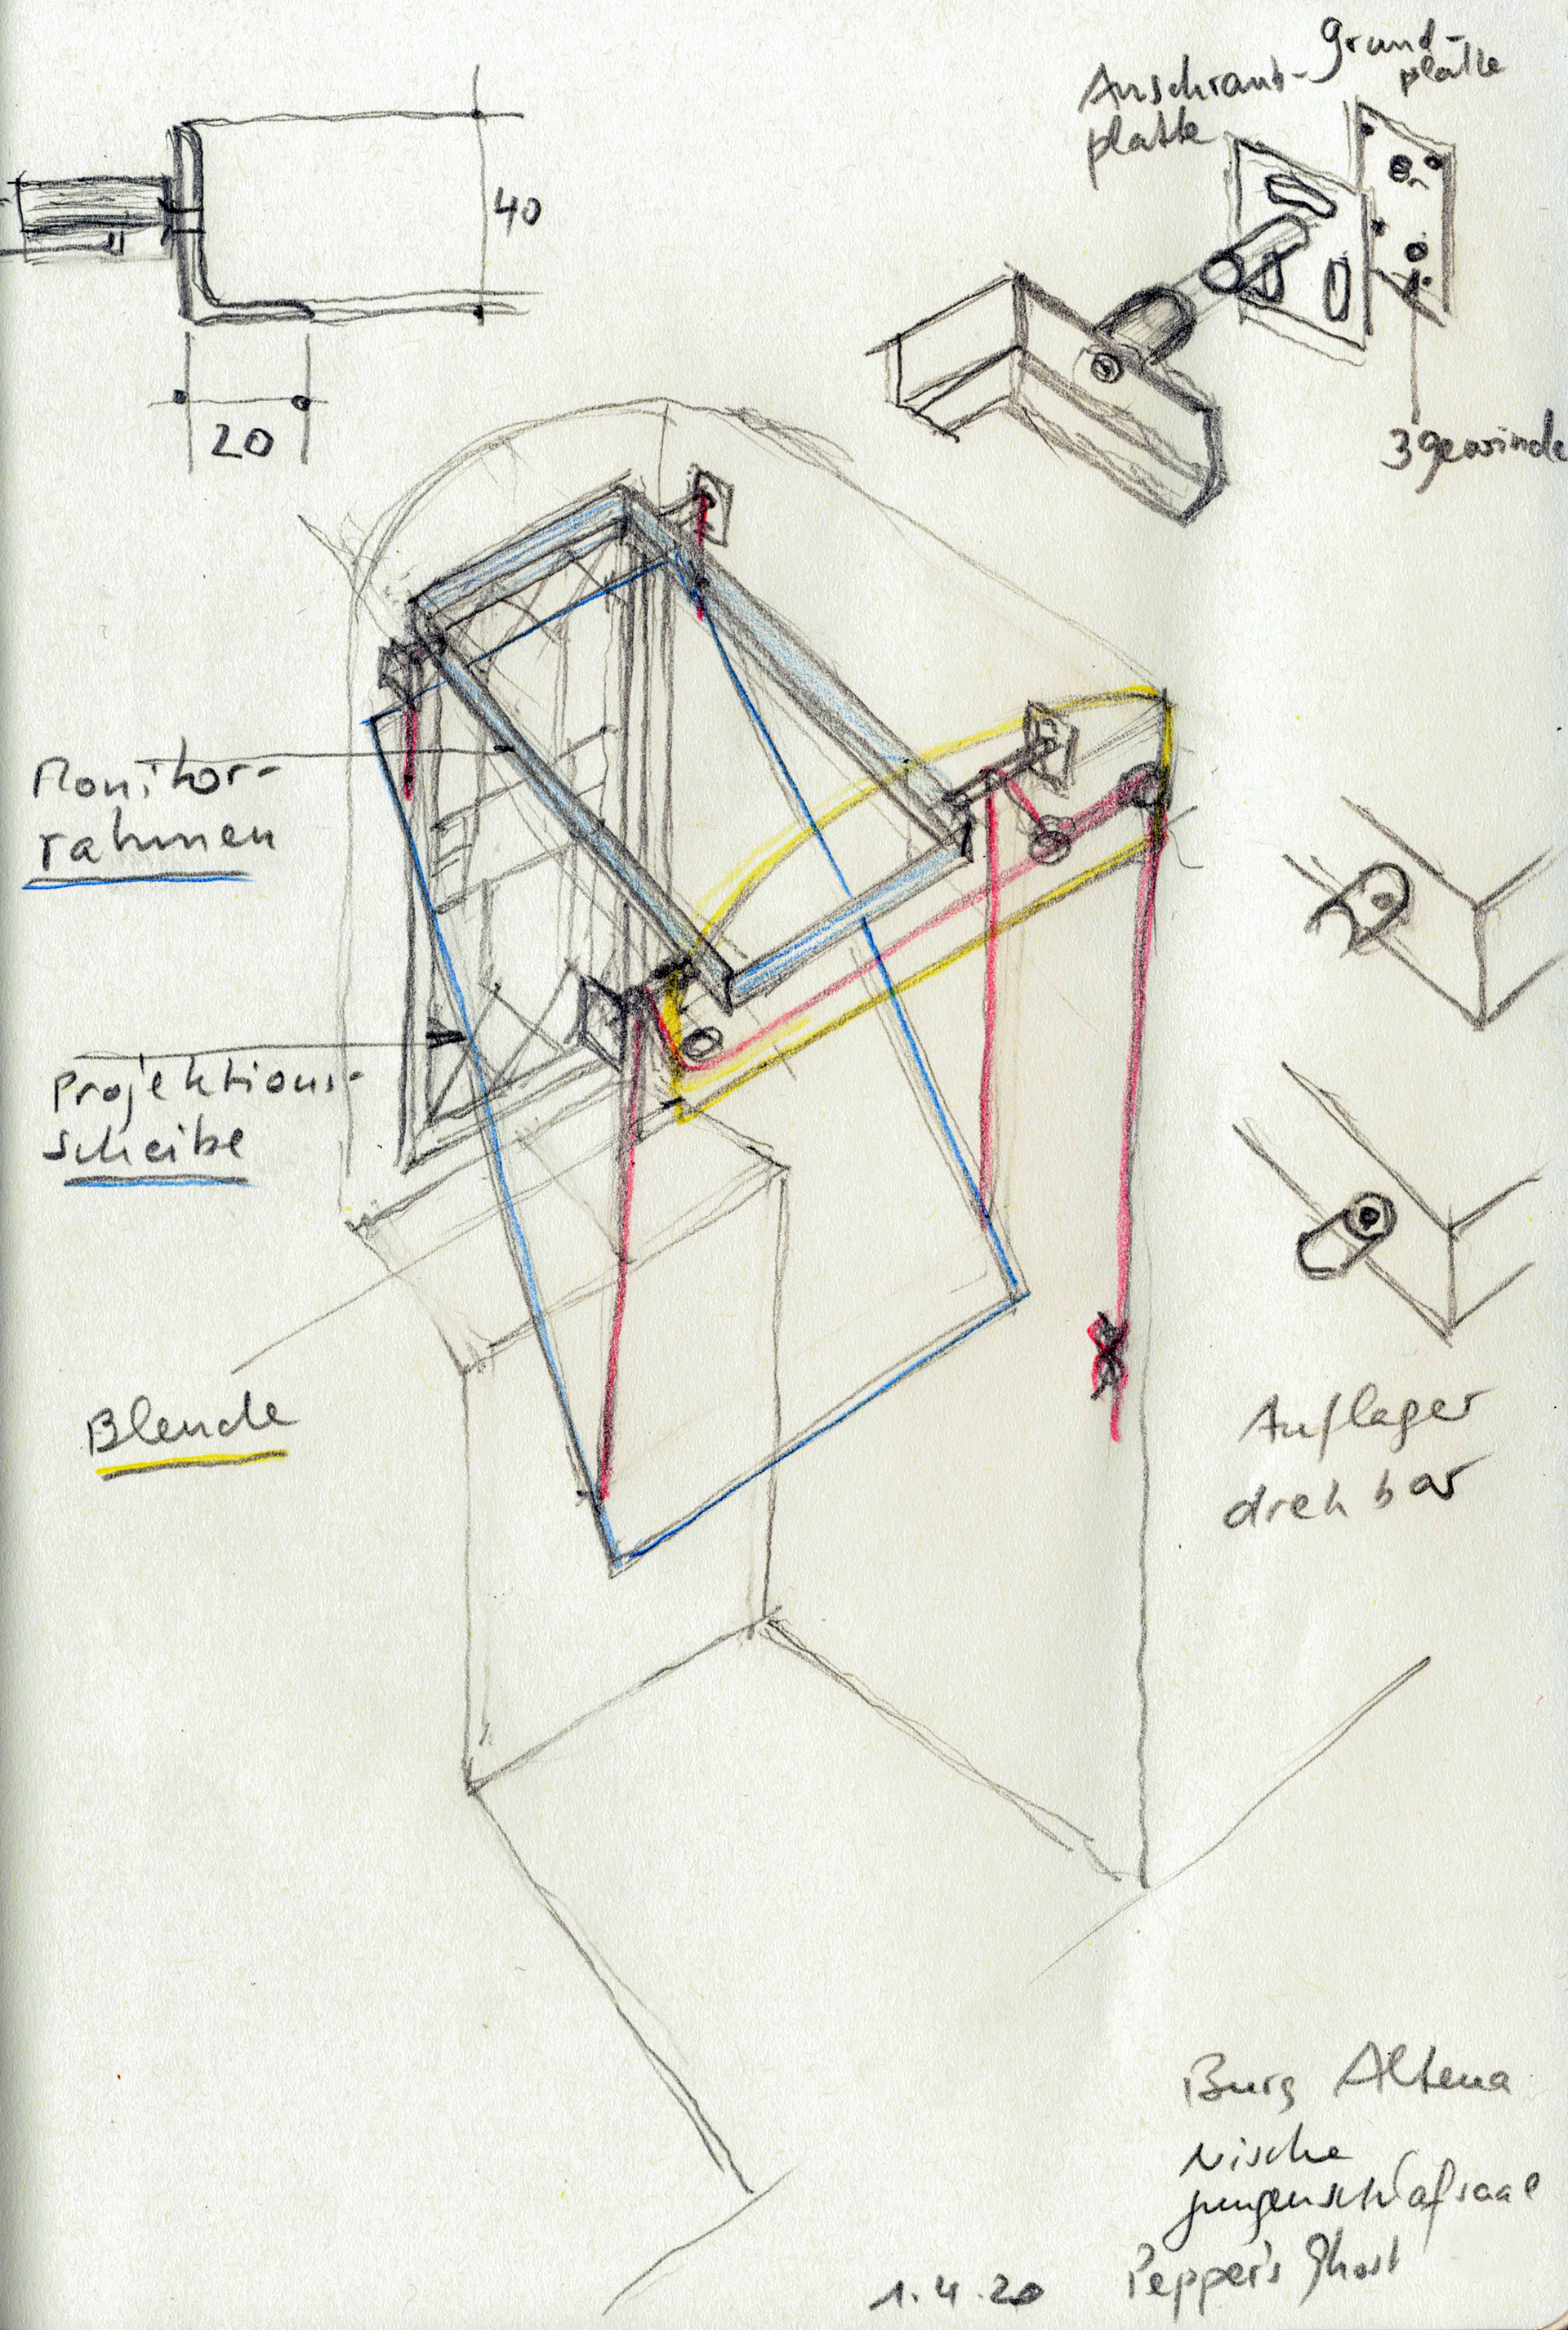 Grund-
platte
Anschraub-
platte
40
20
3 gewinde
Monitor-
rahmen
Projektions-
scheibe
Blende
Auflager
drehbar
Burg Altena
Nische
Jungenschlafsaal
Pepper's Ghost
1.4.20